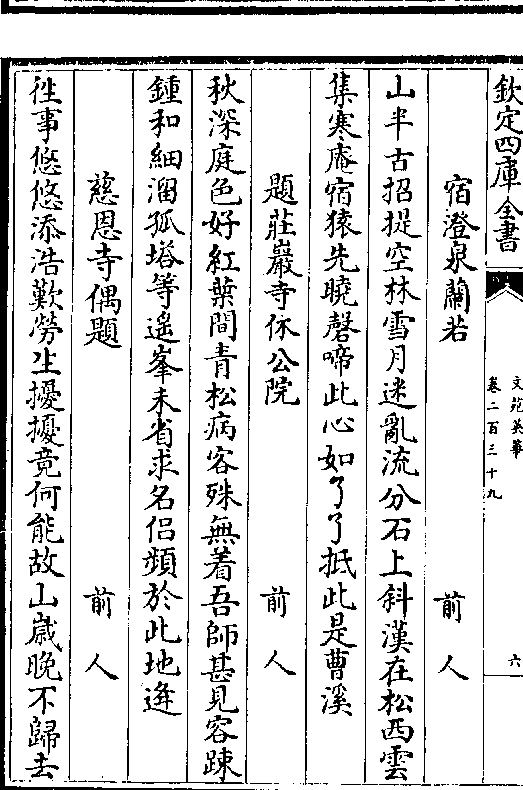 欽定四庫全書
文苑英華
卷二百三十九
六
宿澄泉蘭若　前人
山半古招提空林雪月迷亂流分石上斜漢在松西雲
集寒庵宿猿先曉磬啼此心如了了抵此是曹溪
題莊嚴寺休公院　前人
秋深庭色好紅葉間青松病客殊無着吾師甚見容踈
鍾和細溜孤塔等遙峯未省求名侣頻於此地逢
慈恩寺偶題　前人
徃事悠悠添浩歎勞生擾擾竟何能故山歲晚不歸去